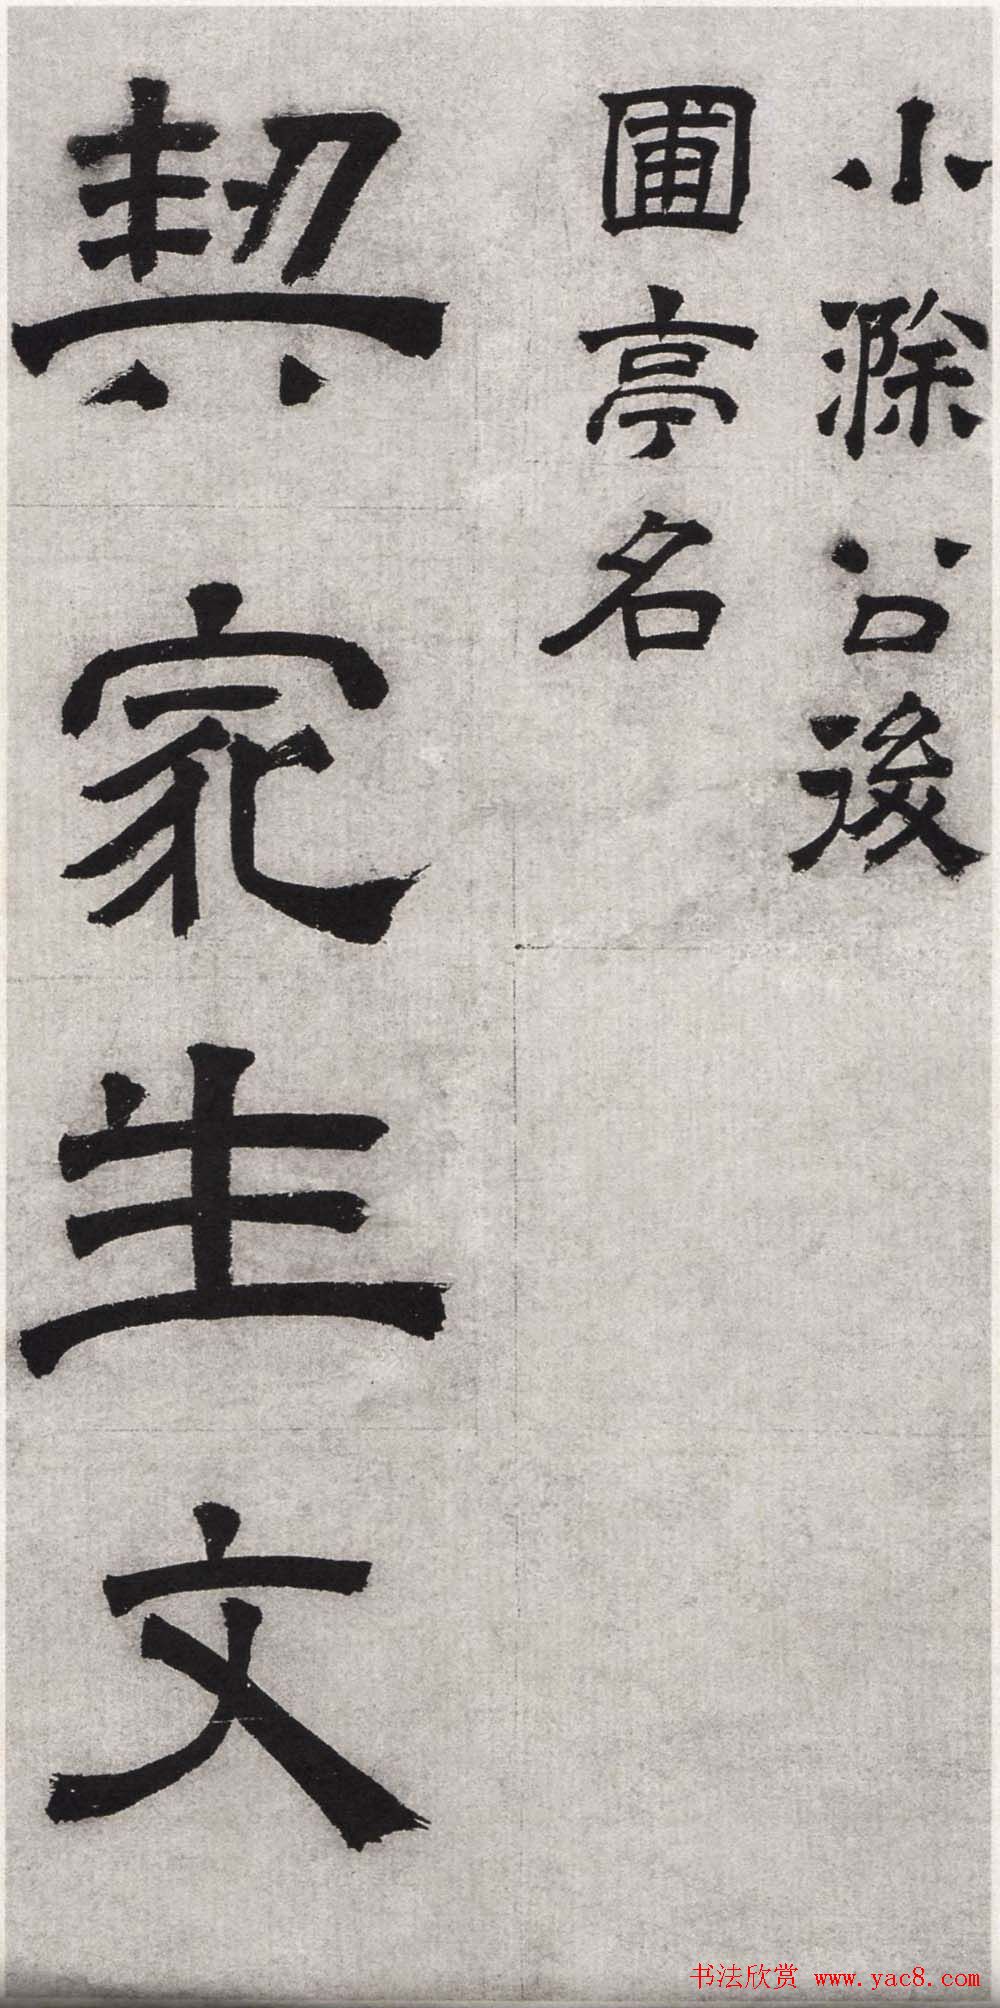 小滁公後
圃亭名
契家生文
书法欣赏 www.yac8.com